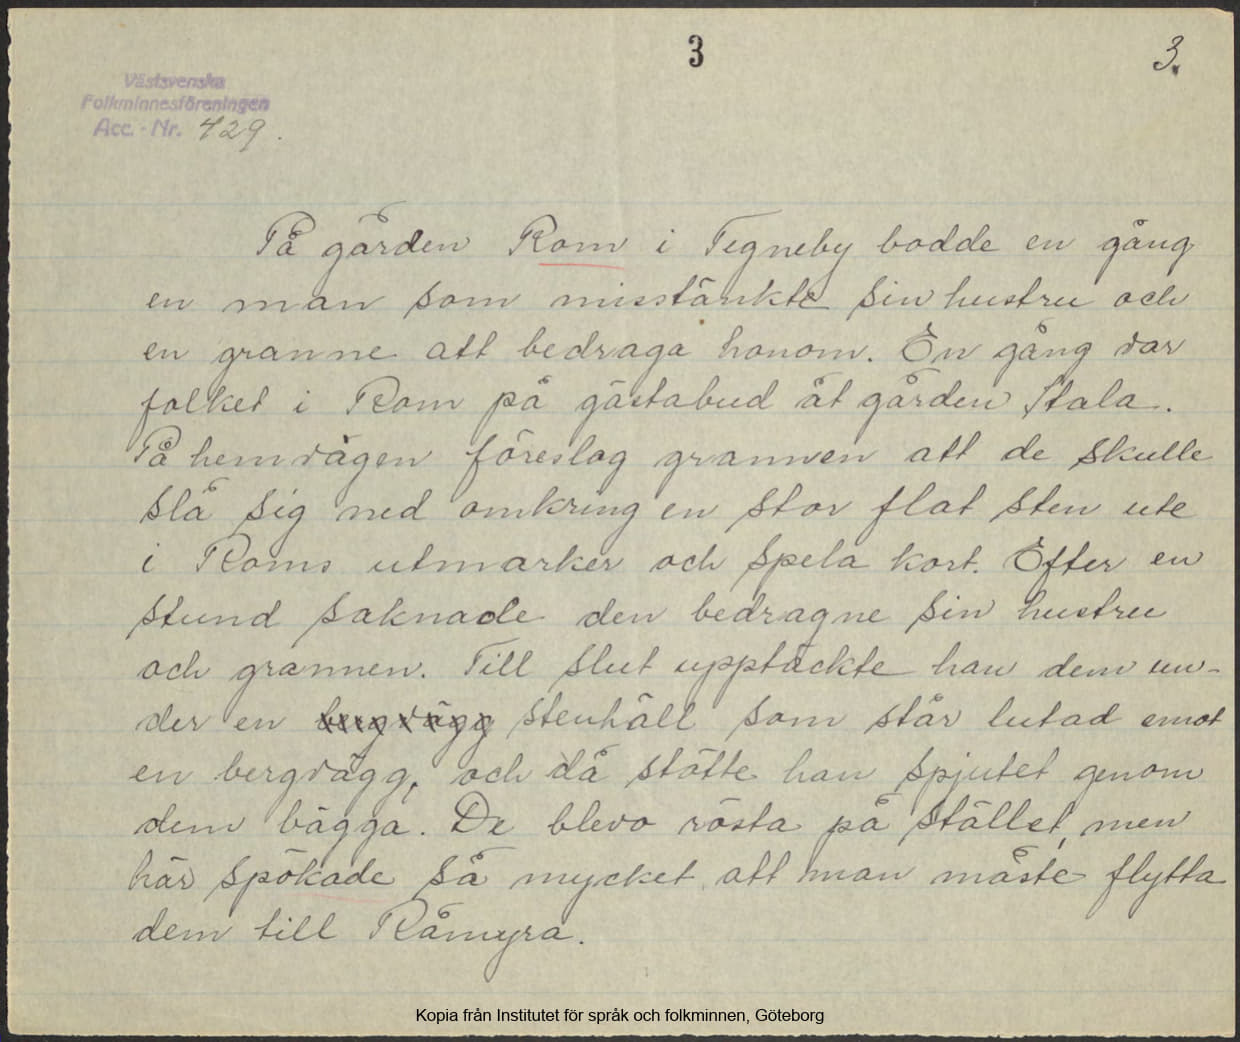 3
3.
Västsvenska
Folkminnesföreningen
Acc. - Nr. 429.
På gården Rom i Tegneby bodde en gång
en man som misstänkte sin hustru och
en granne att bedraga honom. En gång var
folket i Rom på gästabud åt gården Stala.
På hemvägen föreslog grannen att de skulle
slå sig ned omkring en stor flat sten ute
i Roms utmarker och spela kort. Efter en
stund saknade den bedragne sin hustru
och grannen. Till slut upptäckte han dem un-
der en bergvägg stenhäll som står lutad emot
en bergvägg, och då stötte han spjutet genom
dem bägga. De blevo rösta på stället, men
här spökade så mycket att man måste flytta
dem till Råmyra.
Kopia från Institutet för språk och folkminnen, Göteborg